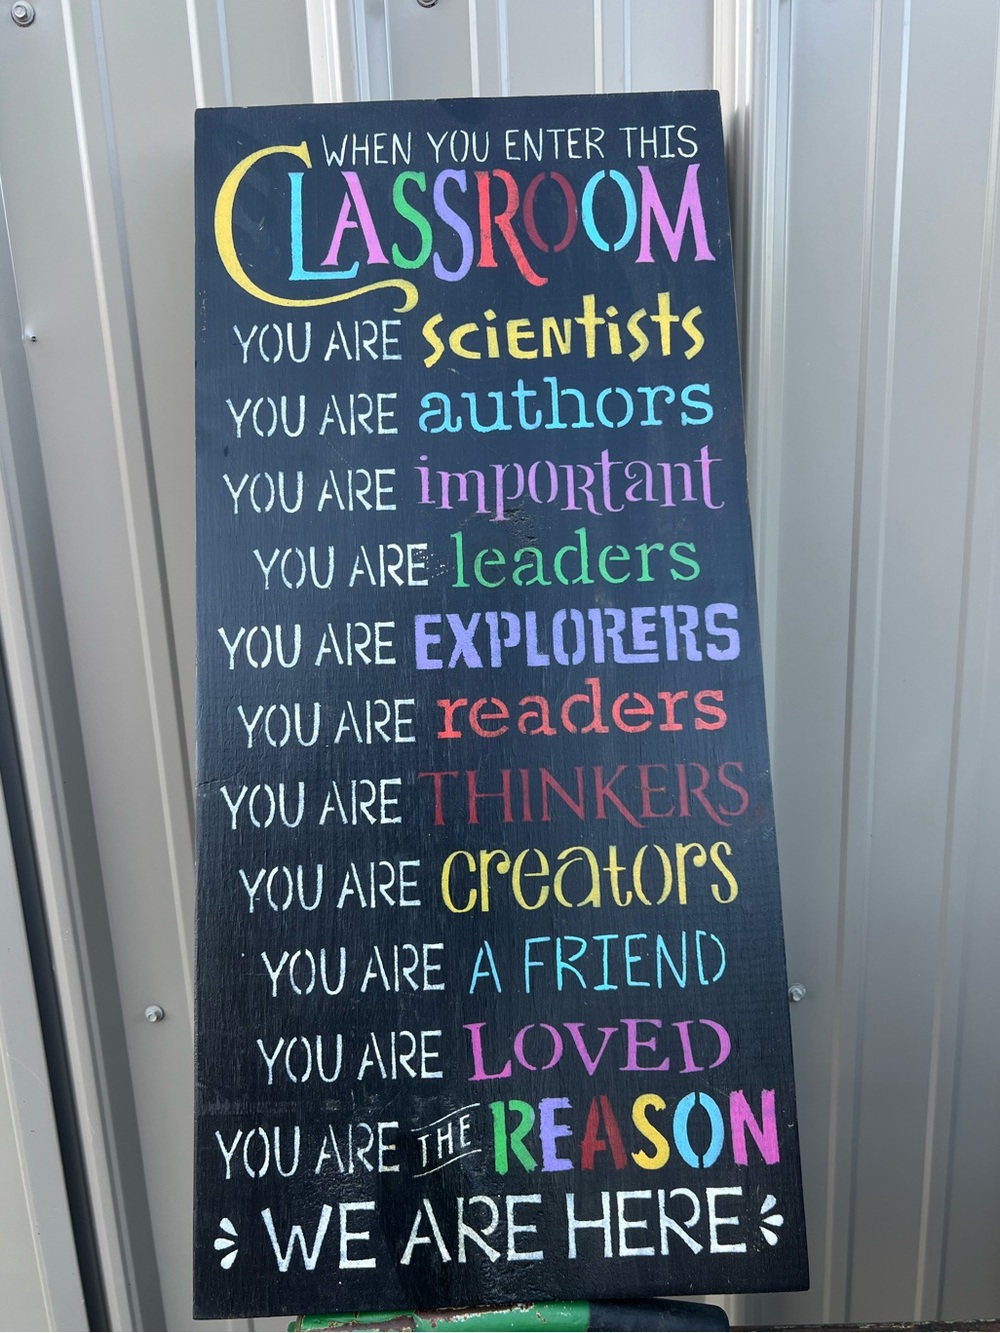 WHEN YOU ENTER THIS
CLASSROOM
YOU ARE scientists
YOU ARE authors
YOU ARE important
YOU ARE leaders
YOU ARE EXPLORERS
YOU ARE readers
YOU ARE THINKERS
YOU ARE creators
YOU ARE A FRIEND
YOU ARE LOVED
YOU ARE THE REASON
WE ARE HERE